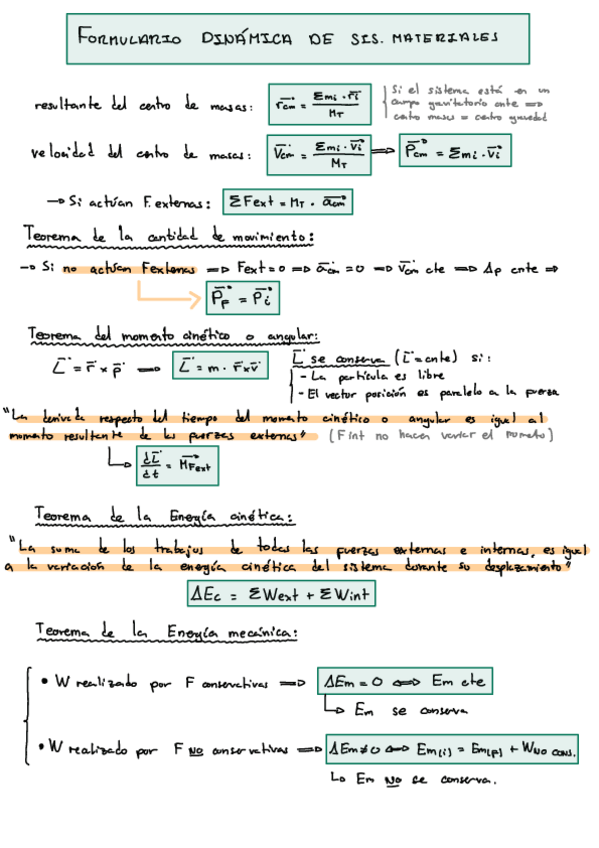 FORMULARIO DINÁMICA DE SIS. MATERIALES
resultante del centro de masas: r⃗cm = Σmi · r⃗i / MT
Si el sistema está en un
campo gravitatorio cnte ⇒
centro masas = centro gravedad
velocidad del centro de masas: V⃗cm = Σmi · v⃗i / MT ⇒ P⃗cm = Σmi · v⃗i
→ Si actúan F. externas: ΣFext = MT · a⃗cm
Teorema de la cantidad de movimiento:
→ Si no actúan Fexternas ⇒ Fext = 0 ⇒ a⃗cm = 0 ⇒ v⃗cm cte ⇒ Δp cnte ⇒
P⃗f = P⃗i
Teorema del momento cinético o angular:
L⃗ = r⃗ x p⃗ ⇒ L⃗ = m · r⃗ x v⃗
L⃗ se conserva (L⃗ = cnte) si:
- La partícula es libre
- El vector posición es paralelo a la fuerza
"La derivada respecto del tiempo del momento cinético o angular es igual al
momento resultante de las fuerzas externas" (Fint no hacen variar el momento)
dL⃗ / dt = M⃗Fext
Teorema de la Energía cinética:
"La suma de los trabajos de todas las fuerzas externas e internas, es igual
a la variación de la energía cinética del sistema durante su desplazamiento"
ΔEc = ΣWext + ΣWint
Teorema de la Energía mecánica:
• W realizado por F conservativas ⇒ ΔEm = 0 ⇔ Em cte
↳ Em se conserva
• W realizado por F NO conservativas ⇒ ΔEm ≠ 0 ⇔ Em(i) = Em(f) + WNO CONS.
↳ Em NO se conserva.